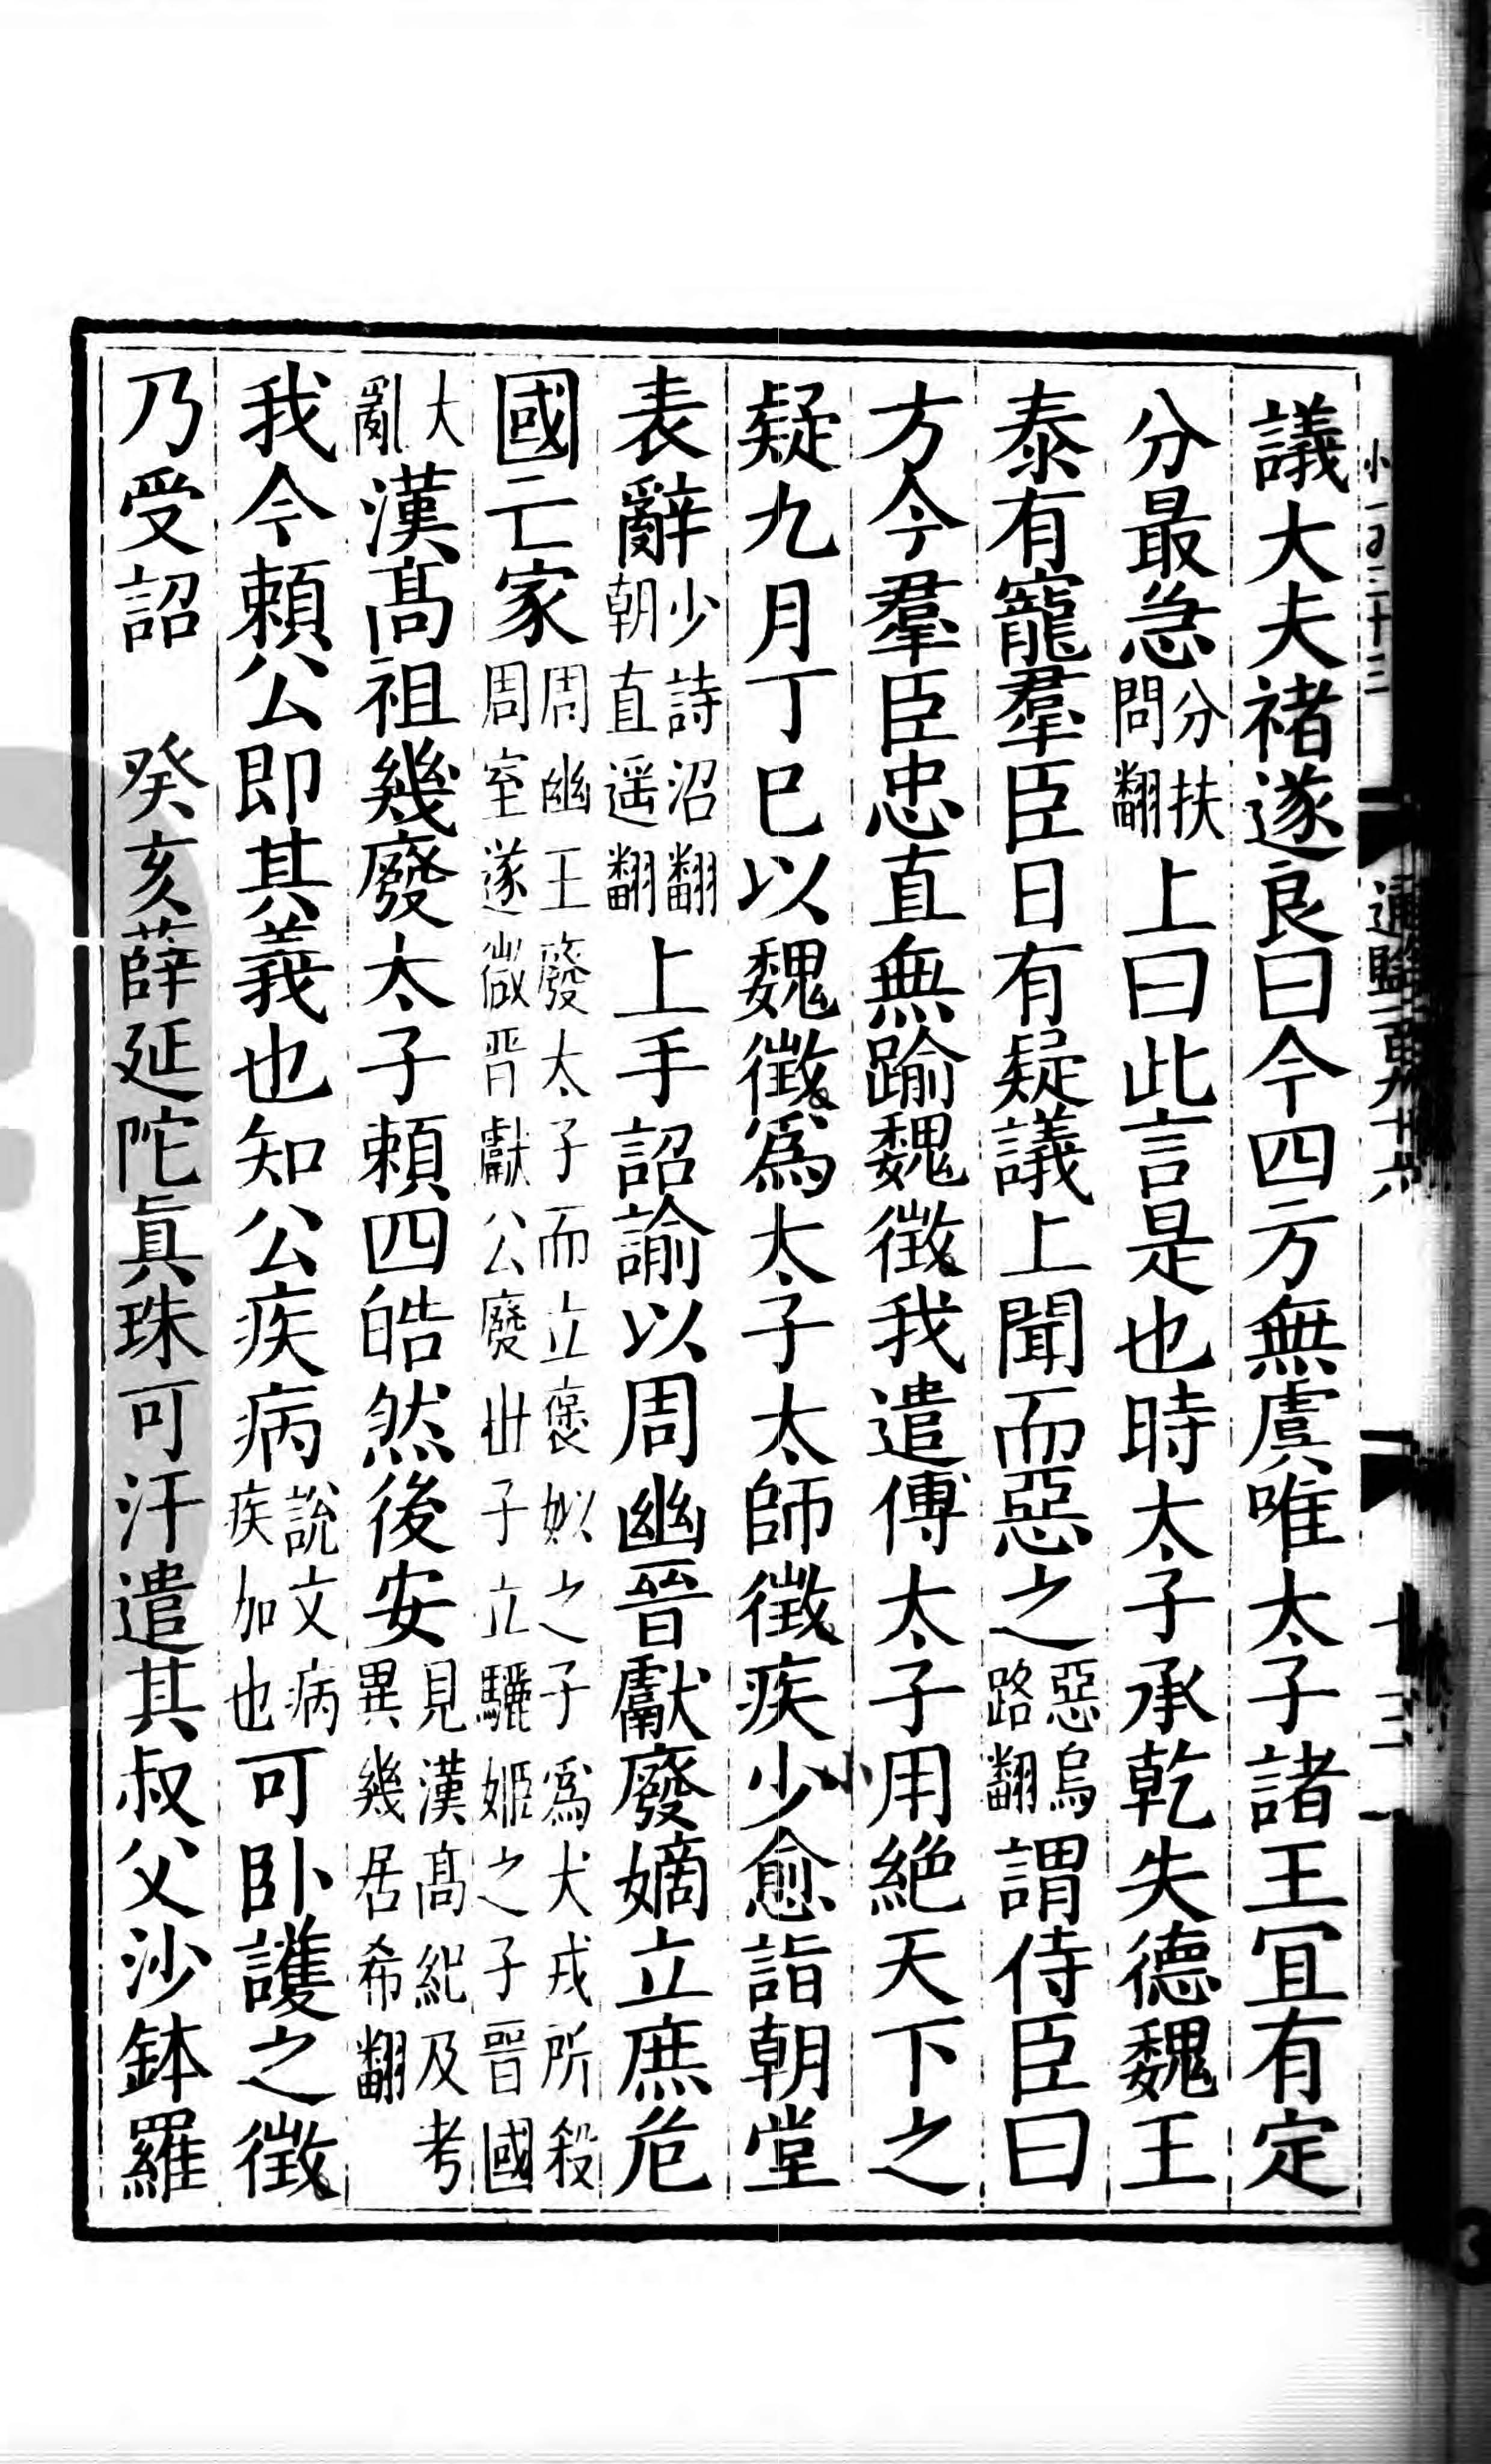 議大夫褚遂良曰今四方無虞唯太子諸王宜有定
分最急分扶問翻上曰此言是也時太子承乾失德魏王
泰有寵羣臣日有疑議上聞而惡之惡烏路翻謂侍臣曰
方今羣臣忠直無踰魏徵我遣傅太子用絶天下之
疑九月丁巳以魏徵爲太子太師徵疾少愈詣朝堂
表辭少詩沼翻朝直遥翻上手詔諭以周幽晉獻廢嫡立庶危
國亡家周幽王廢太子而立褒姒之子爲犬戎所殺周室遂微晋獻公廢世子立驪姬之子晉國
大亂漢髙祖幾廢太子賴四皓然後安見漢髙紀及考異幾居希翻
我今賴公即其義也知公疾病說文病疾加也可卧護之徵
乃受詔　癸亥薛延陀眞珠可汗遣其叔父沙鉢羅
通鑑一百九十六